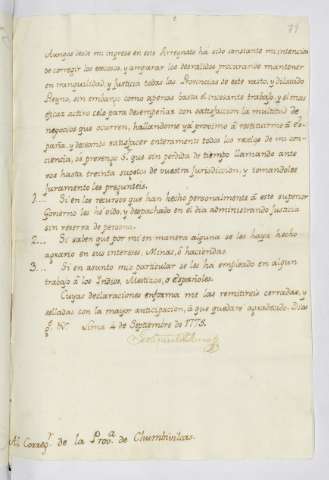 79
Aunque desde mi ingreso en este Virreynato ha sido constante mi intencion
de corregir los excesos, y amparar los desvalidos procurando mantener
en tranquilidad, y Justicia todas las Provincias de este vasto, y dilatado
Reyno, sin embargo como apenas basta el incesante trabajo, y el mas
eficaz activo celo para desempeñar con satisfaccion la multitud de
negocios que ocurren, hallandome ya proximo á restituirme á Es-
paña, y deseando satisfacer enteramente todos los rezelos de mi con-
ciencia, os prevengo S. que sin perdida de tiempo llamando ante
vos hasta treinta sugetos de vuestra Jurisdiccion, y tomandoles
Juramento les pregunteis.
1... Si en los recursos que han hecho personalmente á este superior
Govierno les hé oido, y despachado en el dia administrando Justicia
sin reserva de persona.
2... Si saven que por mi en manera alguna se les haya hecho
agravio en sus intereses, Minas, ó haciendas.
3... Si en asunto mio particular se les ha empleado en algun
trabajo á los Yndios, Mestizos, ó Españoles.
Cuyas declaraciones en forma me las remitireis cerradas, y
selladas con la mayor anticipacion, á que quedaré agradecido. Dios
g.e V.s Lima 4 de Septiembre de 1775.
Al Correg.r de la Prov.a de Chumbivilcas.